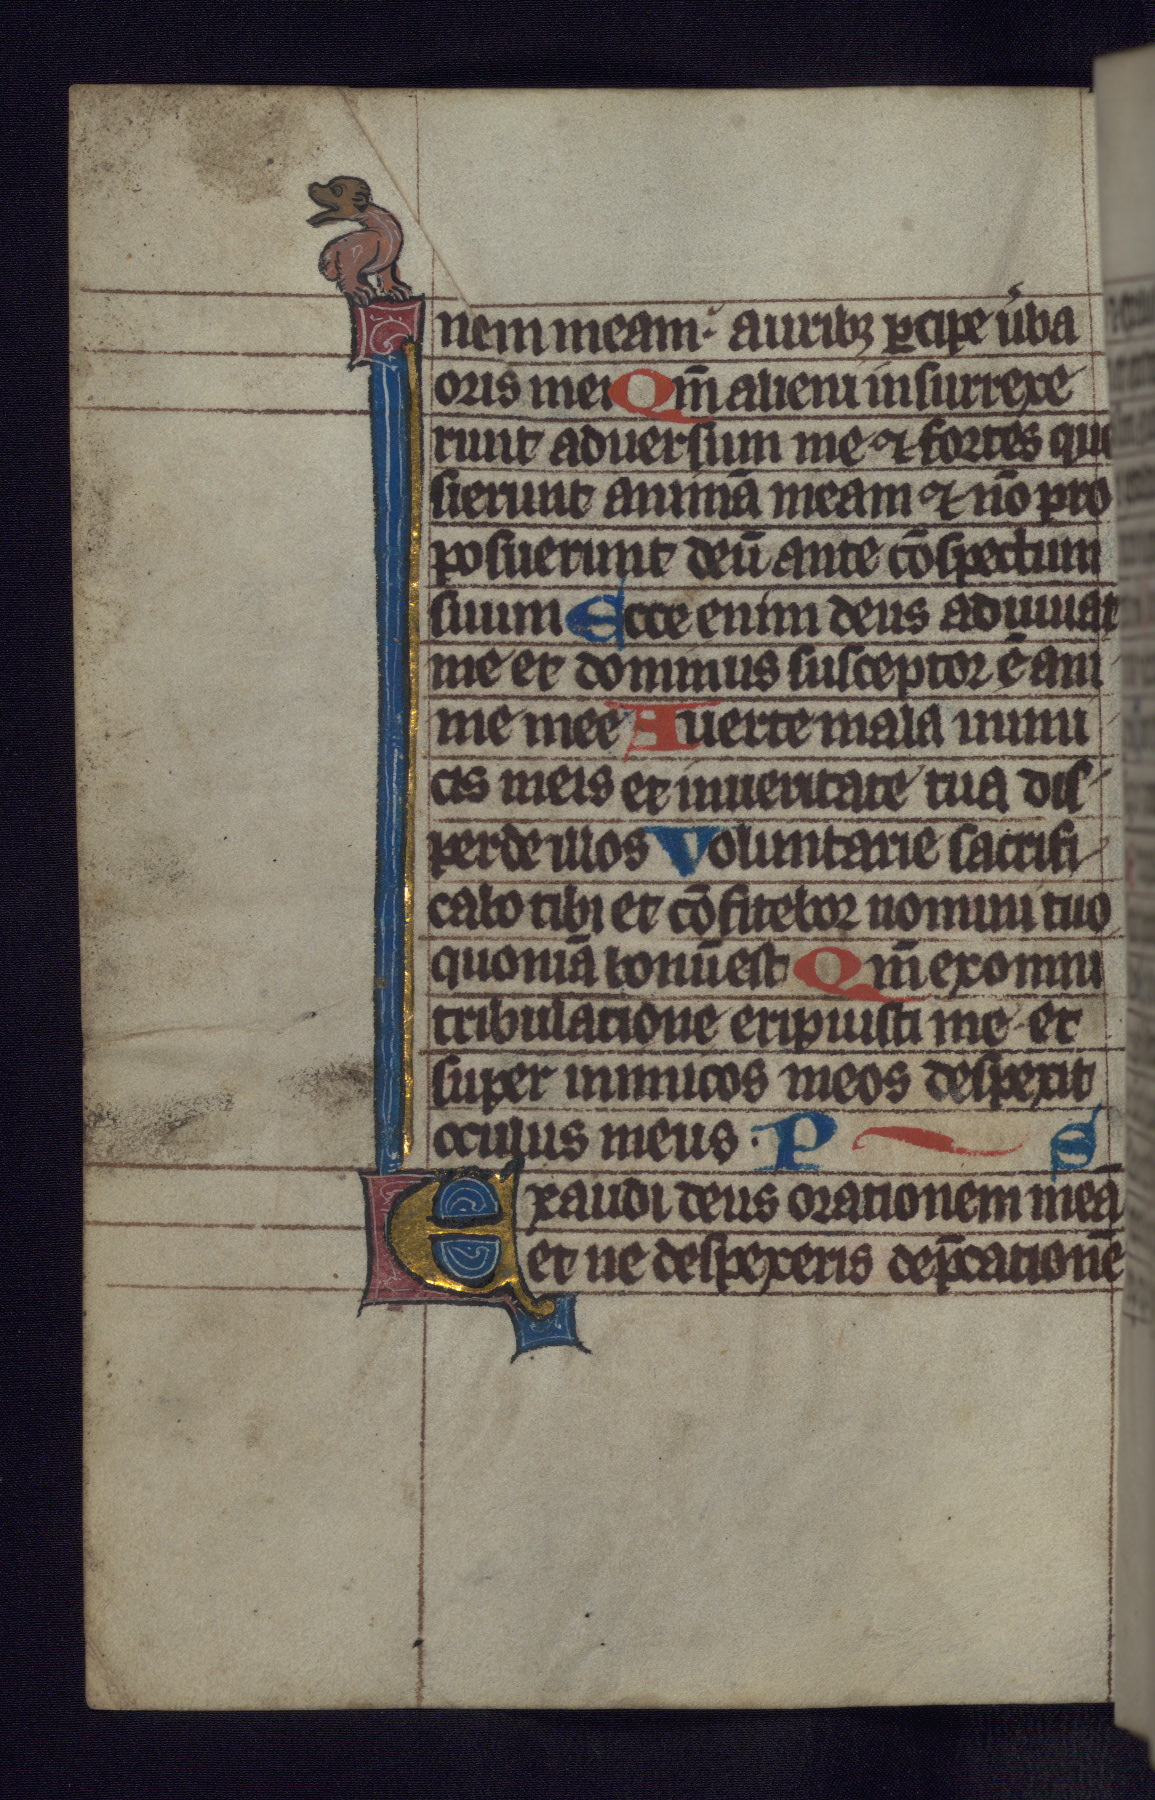 nem meam: auribꝫ ꝑcipe ũba
oris mei Qm̃ alieni insurrexe
runt aduersum me ⁊ fortes que
sierunt animā meam ⁊ nō pro
posuerunt deū ante cōspectum
suum Ecce enim deus adiuuat
me et dominus susceptor ē ani
me mee Auerte mala inimi
cis meis et in ueritate tua dis
perde illos Voluntarie sacrifi
cabo tibi et cōfitebor nomini tuo
quoniā bonū est Qm̃ ex omni
tribulatione eripuisti me et
super inimicos meos despexit
oculus meus. P S
Exaudi deus orationem meā
et ne despexeris dep̄cationē